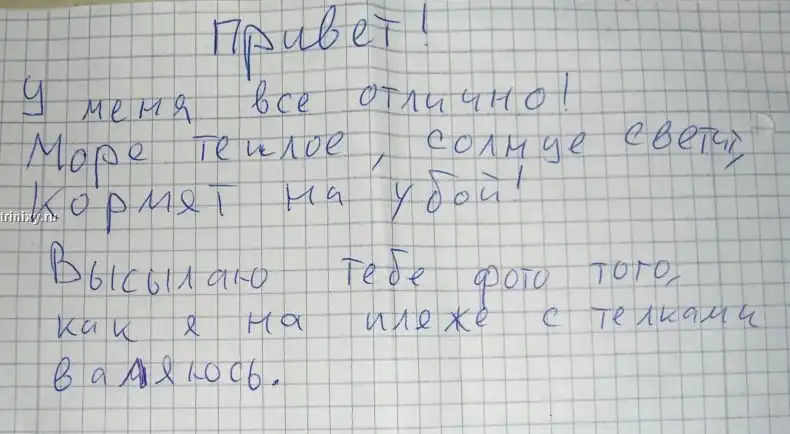 Привет!
У меня все отлично!
Море теплое, солнце светит,
Кормят на убой!
trinixy.ru
Высылаю тебе фото того,
как я на пляже с телками
валяюсь.